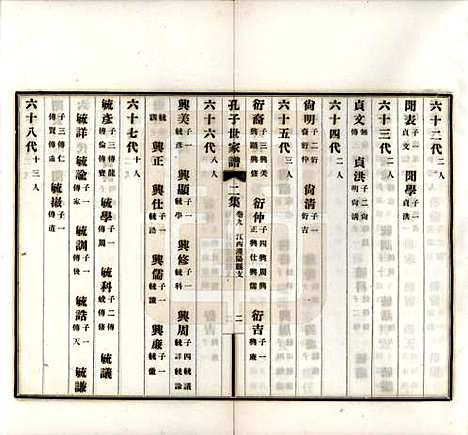 六十二代二人
聞表子一貞文 聞學子一貞洪
六十三代二人
貞文 貞洪子二尙明尙清
六十四代二人
尙明子二衍裔衍仲 尙清子一衍吉
六十五代三人
衍裔子三興美興顯興修 衍仲子四興周興正興仕興儒 衍吉子一興廉
孔子世家譜 二集 卷九 江西 縣支 二
六十六代八人
興美子一毓彥 興顯子一毓學 興修子一毓科 興周子四毓議毓詳毓諭毓訓
興正 興仕子一毓誥 興儒子一毓謙 興廉子一毓徽
六十七代十人
毓彥 毓學子一傳周 毓科子二傳 毓議
毓詳子三傳仁傳賢傳 毓諭子一傳家 毓訓子一傳後 毓誥子一傳天 毓謙
子三傳 毓徽子一傳清
六十八代十三人